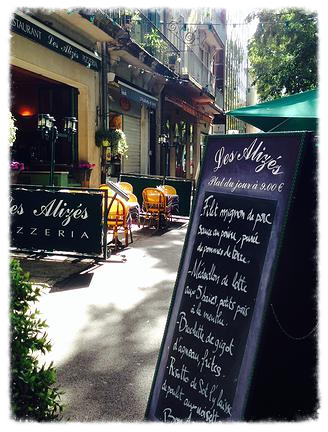 RESTAURANT Les Alizés PIZZERIA
Les Alizés
PIZZERIA
Les Alizés
Plat du jour à 9.00€
Filet mignon de porc
sauce au poivre, purée
de pommes de terre.
- Médaillon de lotte
aux 5 baies, petits pois
à la menthe.
- Brochette de gigot
d'agneau, frites.
- Risotto de St
de poulet aux noisettes